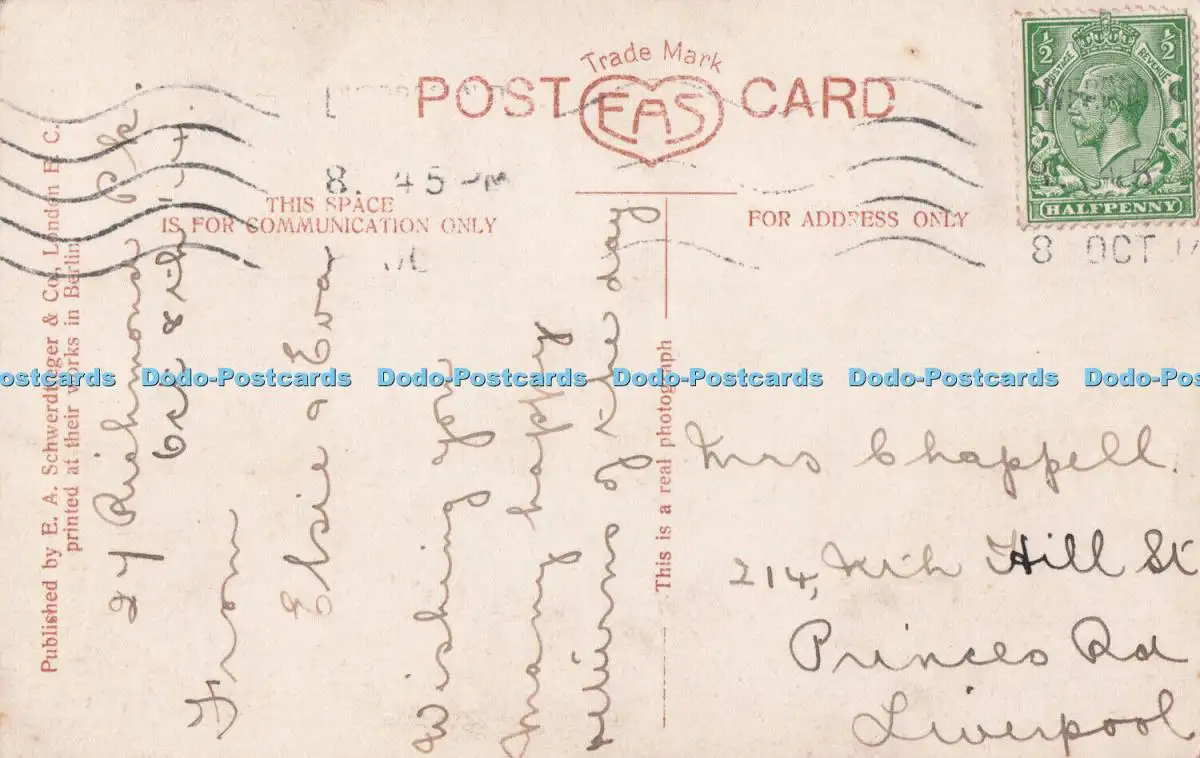 Trade Mark
POST EAS CARD
½ ½
POSTAGE REVENUE
HALFPENNY
8. 45 PM
8 OCT
THIS SPACE
IS FOR COMMUNICATION ONLY
FOR ADDRESS ONLY
Published by E. A. Schwerdtfeger & Co., London E. C.
printed at their works in Berlin
This is a real photograph
27 Richmond Pk.
Oct 8th
From
Elsie & Eva
Wishing you
many happy
returns of the day
Mrs Chappell.
214, Hill St
Princes Rd
Liverpool
Dodo-Postcards Dodo-Postcards Dodo-Postcards Dodo-Postcards Dodo-Postcards